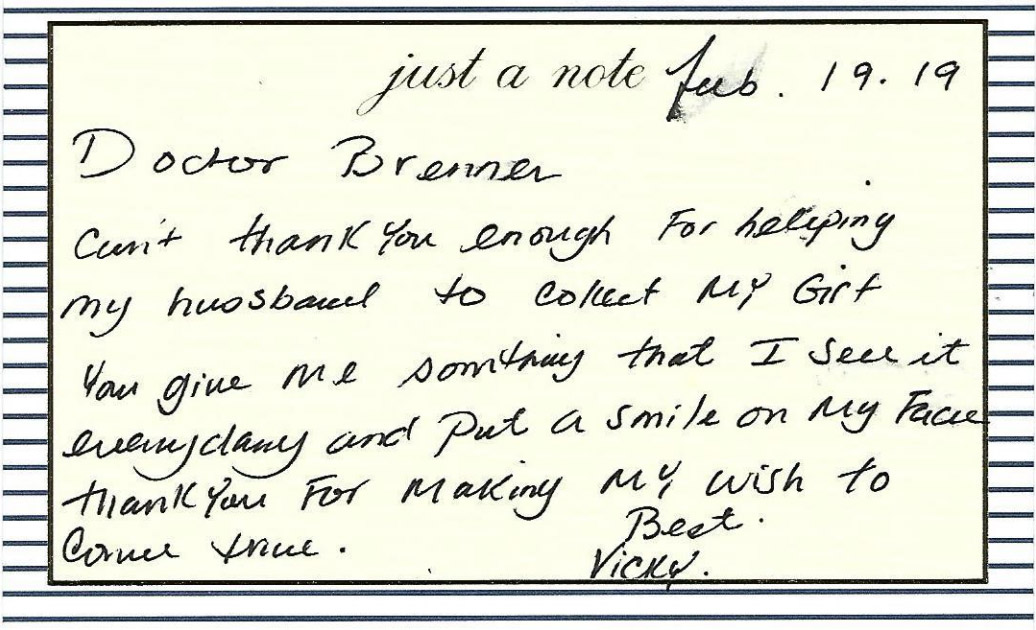 just a note Feb. 19. 19
Doctor Brenner
Can't thank You enough For helping
my hussband to collect My Girt
You give me somthing that I see it
everyday and Put a smile on My Face
thank You For Making My wish to
Come true. Best.
Vicky.